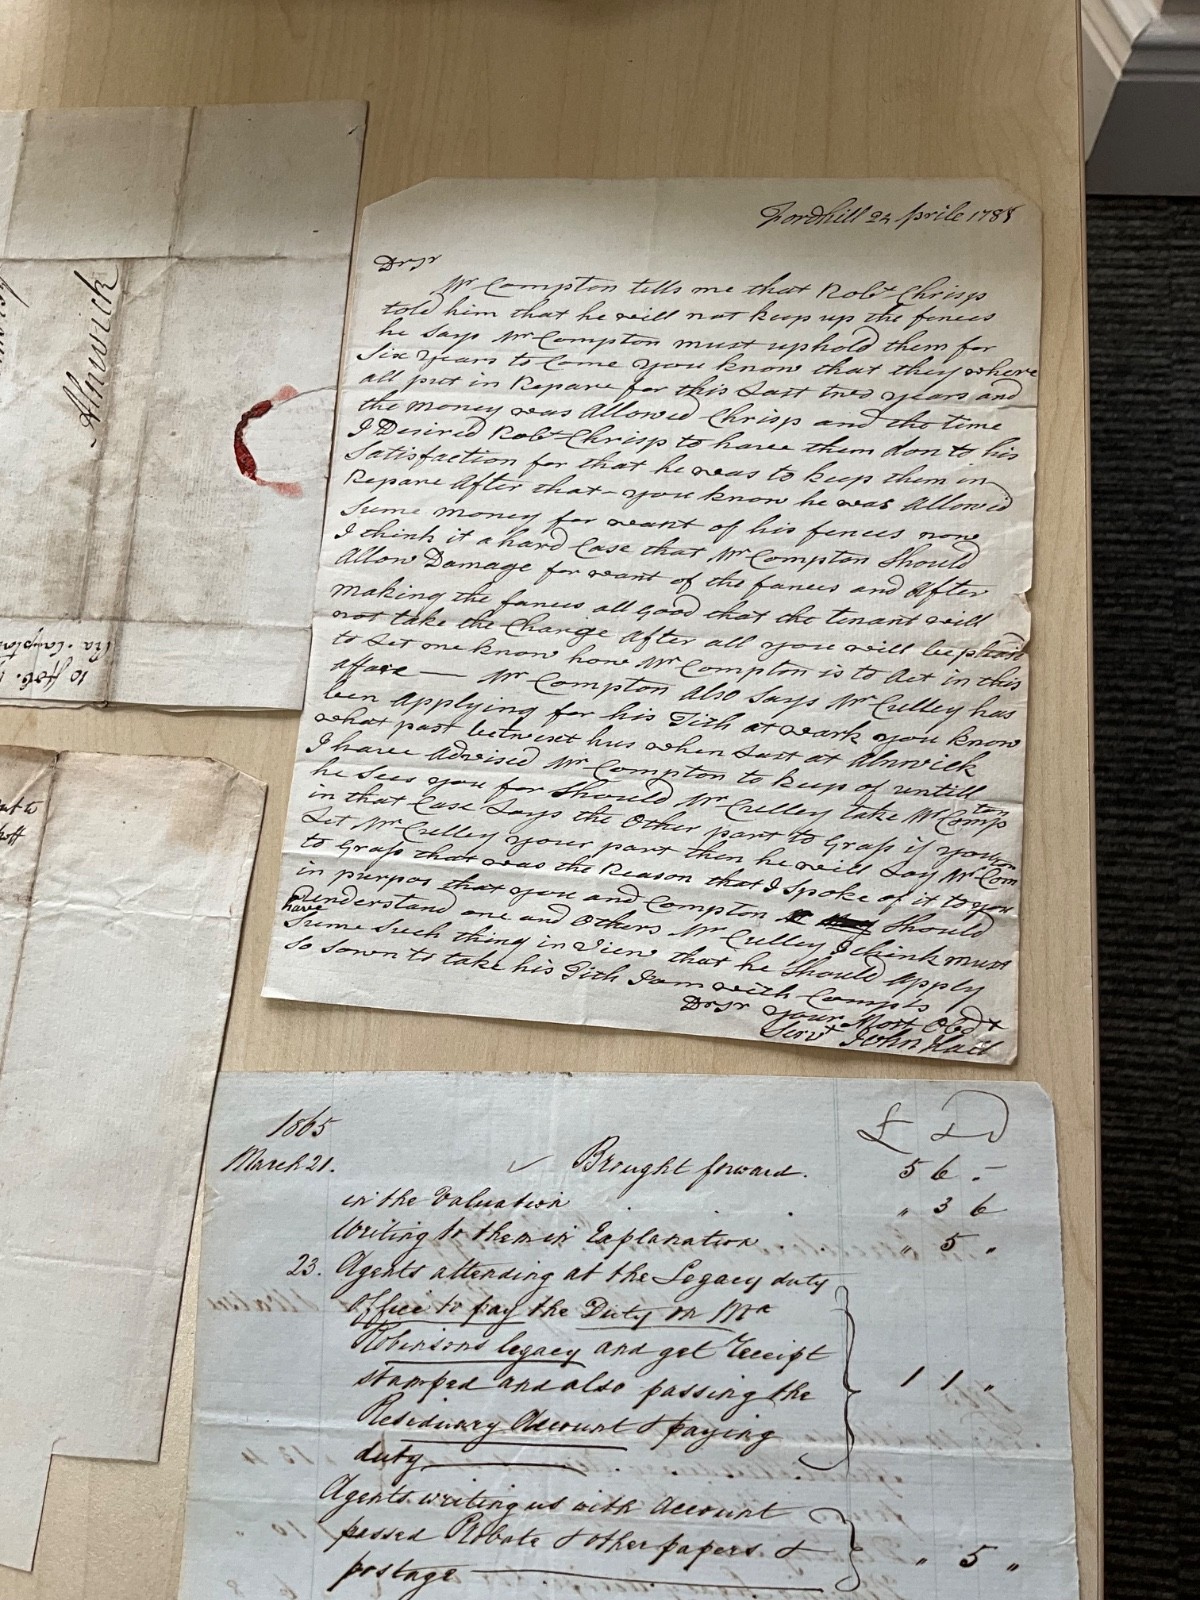 Alnwick
Fordhill 24 Aprile 1788
Dr Sr
Mr Compton tells me that Robt Chrisp
told him that he will not keep up the fences
he says Mr Compton must uphold them for
Six Years to Come you know that they where
all put in Repare for this Last two years and
the money was Allowed Chrisp and the time
I Desired Robt Chrisp to have them don to his
Satisfaction for that he was to keep them in
Repare After that - you know he was Allowed
Sume money for want of his fences now
I think it a hard Case that Mr Compton Should
Allow Damage for want of the fences and After
making the fances all good that the tenant will
not take the Charge After all you will be
to Let me know how Mr Compton is to Act in this
affare — Mr Compton Also Says Mr Culley has
ben Applying for his Tith at wark you know
what past betwixt hus when Last at Alnwick
I have Advised Mr Compton to keep of untill
he Sees you for Should Mr Culley take Mr Compton
in that Case Lays the Other part to Grass if you
Let Mr Culley your part then he will Lay Mr Compton
to Grass that was the Reason that I Spoke of it to you
in purpos that you and Compton Should
understand one and Others Mr Culley I think must
have Sume Such thing in View that he Should Apply
So Sown to take his Tith I am with Compts
Dr Sr your Most Obedt
Servt John Hall
1865
£ S D
March 21. ✓ Brought forward. 5 6 . -
in the Valuation . . . " 3 6
Writing to them in Explanation " 5 "
23. Agents attending at the Legacy duty
office to pay the Duty on Mr
Robinsons legacy and get receipt
stamped and also passing the
Residuary Account & paying
duty 1 1 "
Agents writing us with Account
passed Probate & other papers &
postage " 5 "